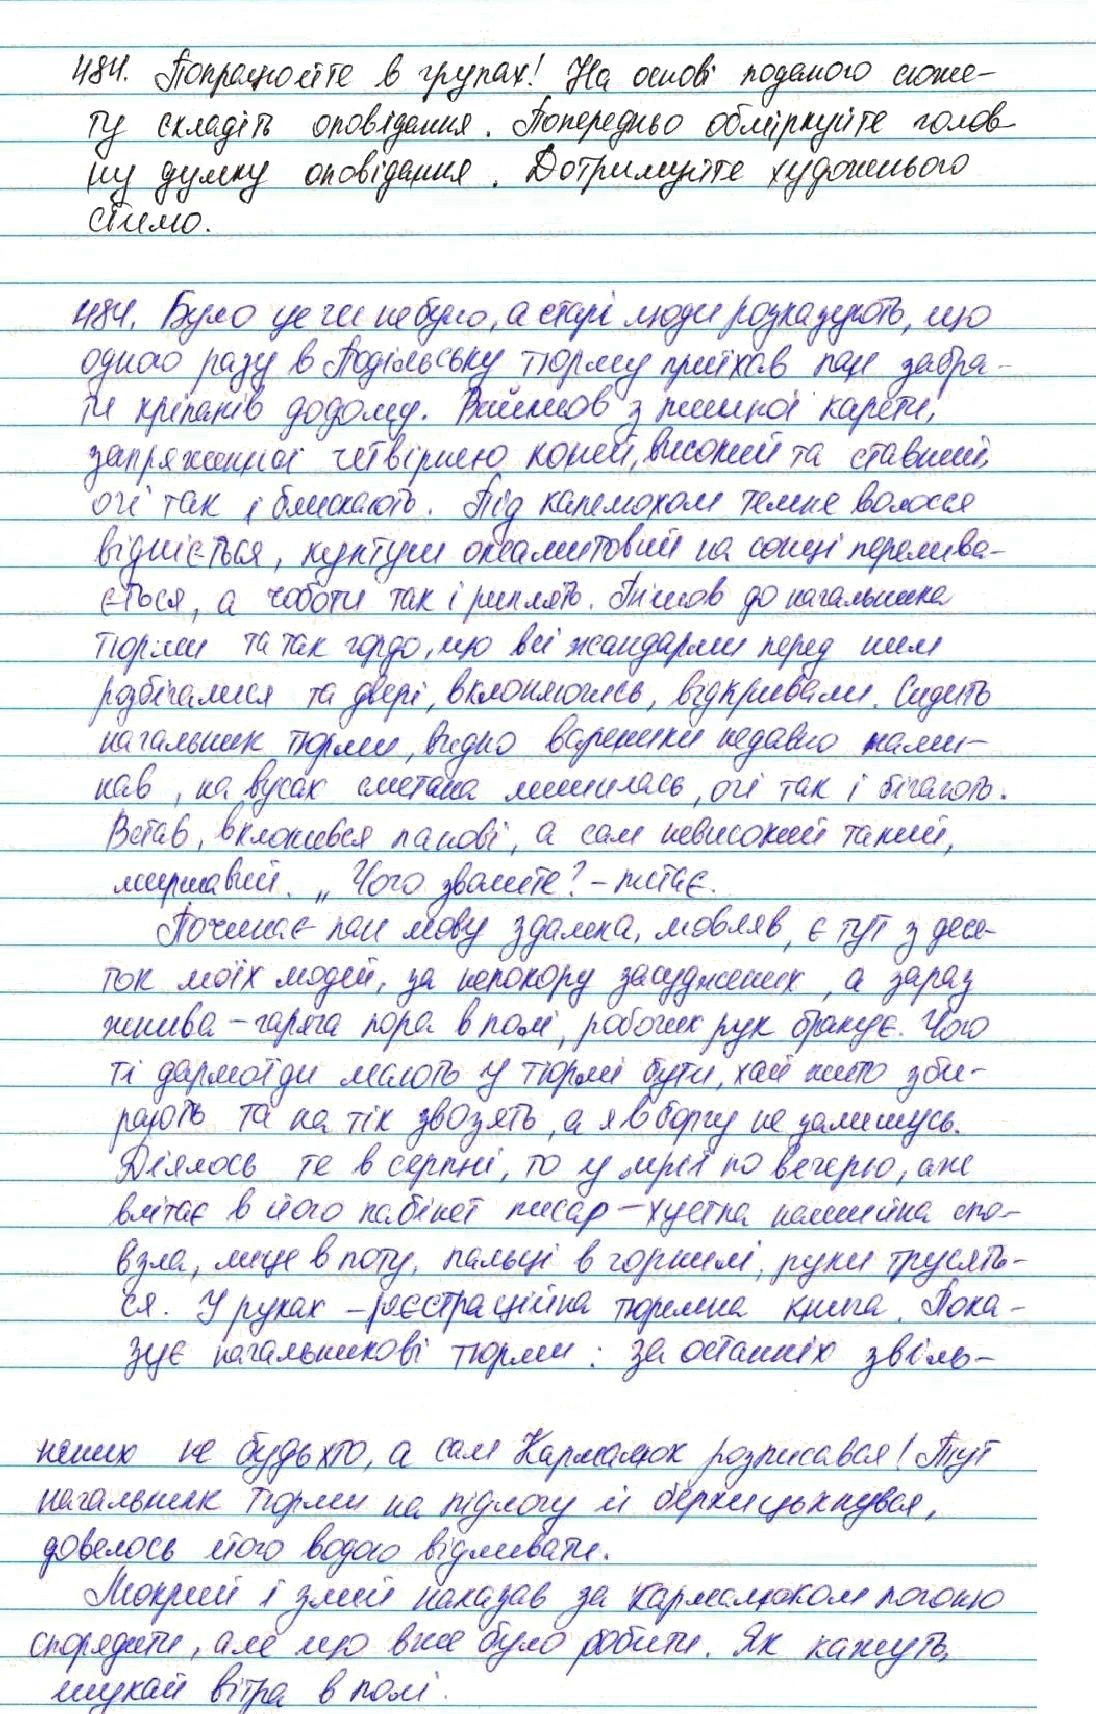 484. Попрацюйте в групах! На основі поданого сюже-
ту складіть оповідання. Попередньо обміркуйте голов-
ну думку оповідання. Дотримуйте художнього
стилю.
484. Було це чи не було, а старі люди розказують, що
одного разу в Подільську тюрму приїхав пан забра-
ти кріпаків додому. Вийшов з пишної карети,
запряженної четвіркою коней, високий та ставний,
очі так і блискають. Під капелюхом темне волосся
відніється, кунтуш оксамитовий на сонці перелива-
ється, а чоботи так і риплять. Пішов до начальника
тюрми та так гордо, що всі жандарми перед ним
розбігалися та двері, вклоняючись, відкривали. Сидить
начальник тюрми, видно вареники недавно нами-
нав, на вусах сметана лишилась, очі так і бігають.
Встав, вклонився панові, а сам невисокий такий,
миршавий. „Чого зволите? - питає.
Починає пан мову здалека, мовляв, є тут з деся-
ток моїх людей, за непокору засуджених, а зараз
жнива - гаряча пора в полі, робочих рук бракує. Чого
ті дармоїди мають у тюрмі бути, хай жито зби-
рають та на тік звозять, а я в боргу не залишусь.
Діялось те в серпні, то у по вечерю, аж
влітає в його кабінет писар - хустка на шийна спо-
взла, лице в поту, пальці в чорнилі, руки трусять-
ся. У руках - реєстраційна тюремна книга. Пока-
зує начальникові тюрми: за останніх звіль-
нених не будь хто, а сам Кармалюк розписався! Тут
начальник тюрми на підлогу й беркицьнувся,
довелось його водою відливати.
Мокрий і злий наказав за Кармалюком погоню
спорядити, але що вже було робити. Як кажуть,
шукай вітра в полі.